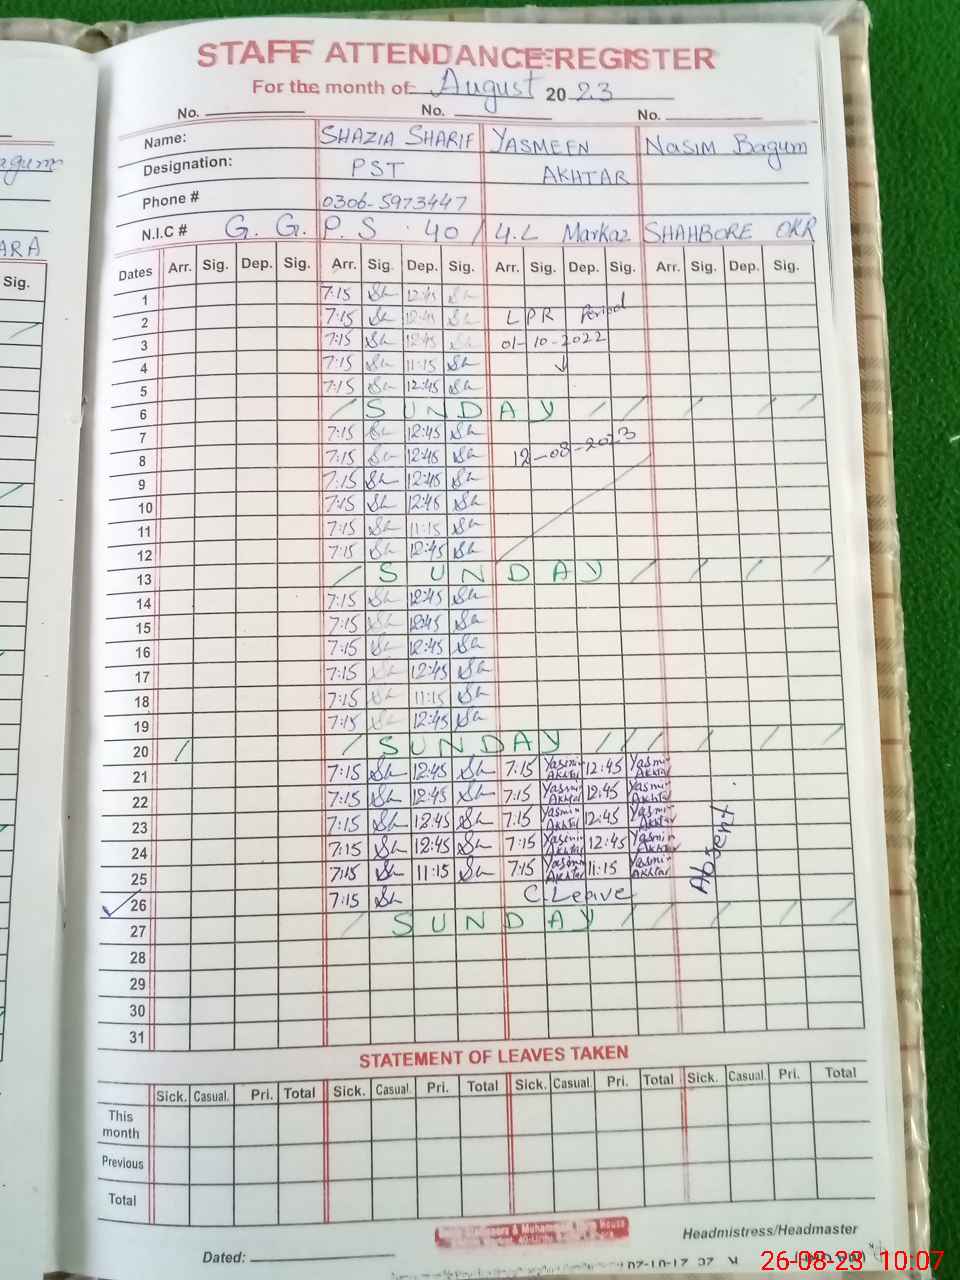 STAFF ATTENDANCE REGISTER
For the month of August 2023
No. No. No.
Name: SHAZIA SHARIF YASMEEN NASIM Bagum
Designation: PST AKHTAR
Phone # 0306-5973447
N.I.C # G. G. P. S. 40/4.L Markaz SHAHBORE OKR
ARA
Sig.
Dates Arr. Sig. Dep. Sig. Arr. Sig. Dep. Sig. Arr. Sig. Dep. Sig. Arr. Sig. Dep. Sig.
1 7:15 Sh 12:45 Sh
2 7:15 Sh 12:45 Sh LPR Period
3 7:15 Sh 12:45 Sh 01-10-2022
4 7:15 Sh 11:15 Sh ↓
5 7:15 Sh 12:45 Sh
6 / SUNDAY / / / / /
7 7:15 Sh 12:45 Sh
8 7:15 Sh 12:45 Sh 12-08-2023
9 7:15 Sh 12:45 Sh
10 7:15 Sh 12:45 Sh
11 7:15 Sh 11:15 Sh
12 7:15 Sh 12:45 Sh
13 / SUNDAY / / / /
14 7:15 Sh 12:45 Sh
15 7:15 Sh 12:45 Sh
16 7:15 Sh 12:45 Sh
17 7:15 Sh 12:45 Sh
18 7:15 Sh 11:15 Sh
19 7:15 Sh 12:45 Sh
20 / / SUNDAY / / / / / /
21 7:15 Sh 12:45 Sh 7:15 Yasmin Akhtar 12:45 Yasmin Akhtar
22 7:15 Sh 12:45 Sh 7:15 Yasmin Akhtar 12:45 Yasmin Akhtar
23 7:15 Sh 12:45 Sh 7:15 Yasmin Akhtar 12:45 Yasmin Akhtar
24 7:15 Sh 12:45 Sh 7:15 Yasmin Akhtar 12:45 Yasmin Akhtar
25 7:15 Sh 11:15 Sh 7:15 Yasmin Akhtar 11:15 Yasmin Akhtar
Absent
26 7:15 Sh C.Leave
27 / SUNDAY / / / / /
28
29
30
31
STATEMENT OF LEAVES TAKEN
Sick. Casual. Pri. Total Sick. Casual. Pri. Total Sick. Casual. Pri. Total Sick. Casual. Pri. Total
This month
Previous
Total
Headmistress/Headmaster
Dated:
26-08-23 10:07